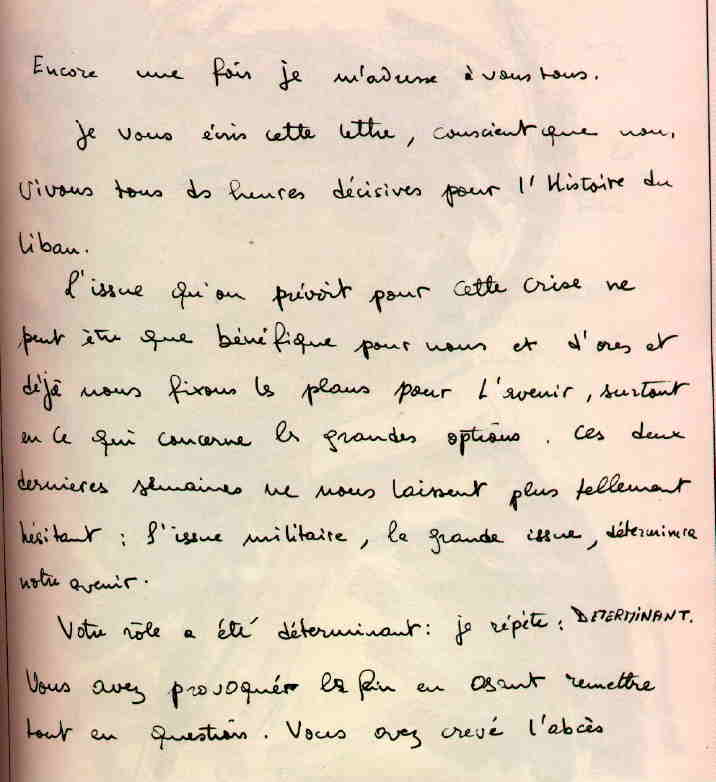 Encore une fois je m'adresse à vous tous.
Je vous écris cette lettre, conscient que nous
vivons tous des heures décisives pour l'Histoire du
Liban.
L'issue qu'on prévoit pour cette crise ne
peut être que bénéfique pour nous et d'ores et
déjà nous fixons les plans pour l'avenir, surtout
en ce qui concerne les grandes options. Ces deux
dernieres semaines ne nous laissent plus tellement
hésitant : l'issue militaire, la grande issue, déterminera
notre avenir.
Votre rôle a été déterminant : je répète : DETERMINANT.
Vous avez provoquér la fin en osant remettre
tout en question. Vous avez crevé l'abcès